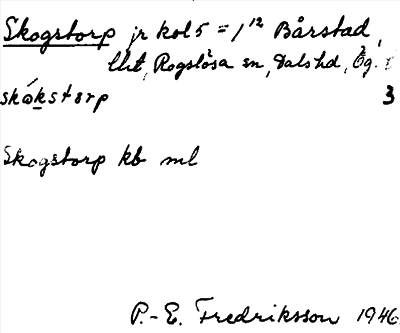 Skogstorp jr kol 5 = 1/12 Bårstad,
lht, Rogslösa sn, Dals hd, Ög.
skókstorp 3
Skogstorp kb ml
P.-E. Fredriksson 1946